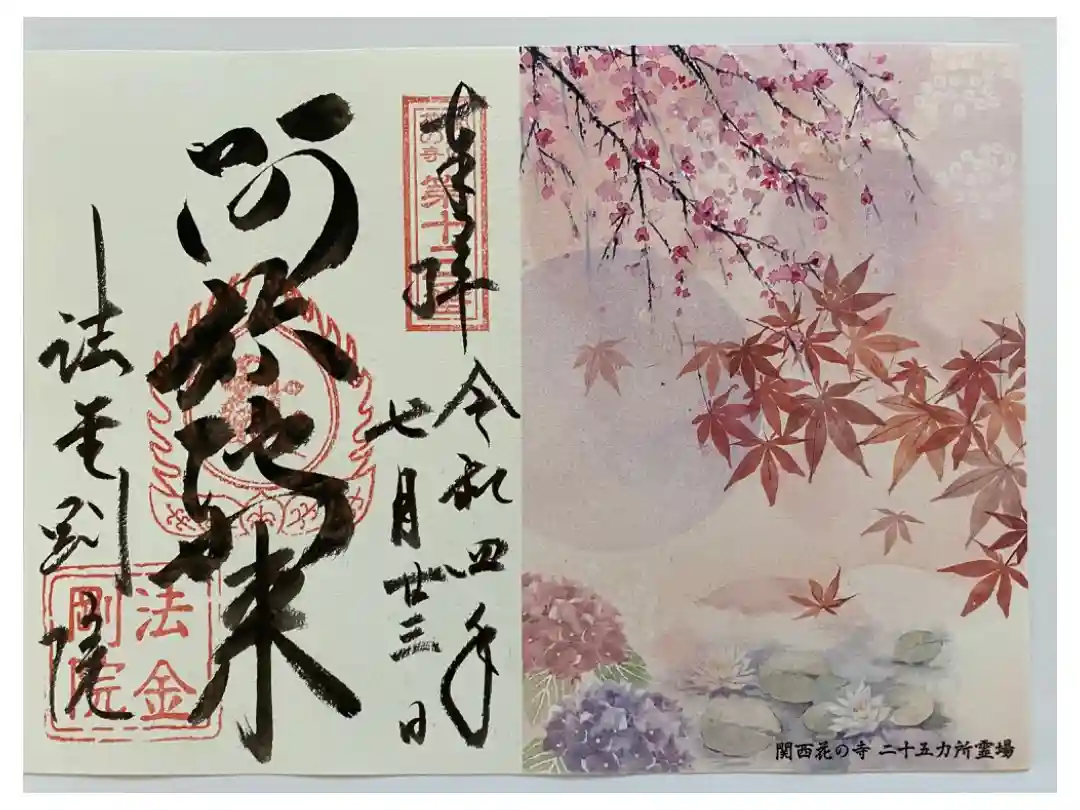 奉拝
令和四年
七月廿三日
阿弥陀如来
法金剛院
法金
剛院
関西花の寺 二十五カ所霊場